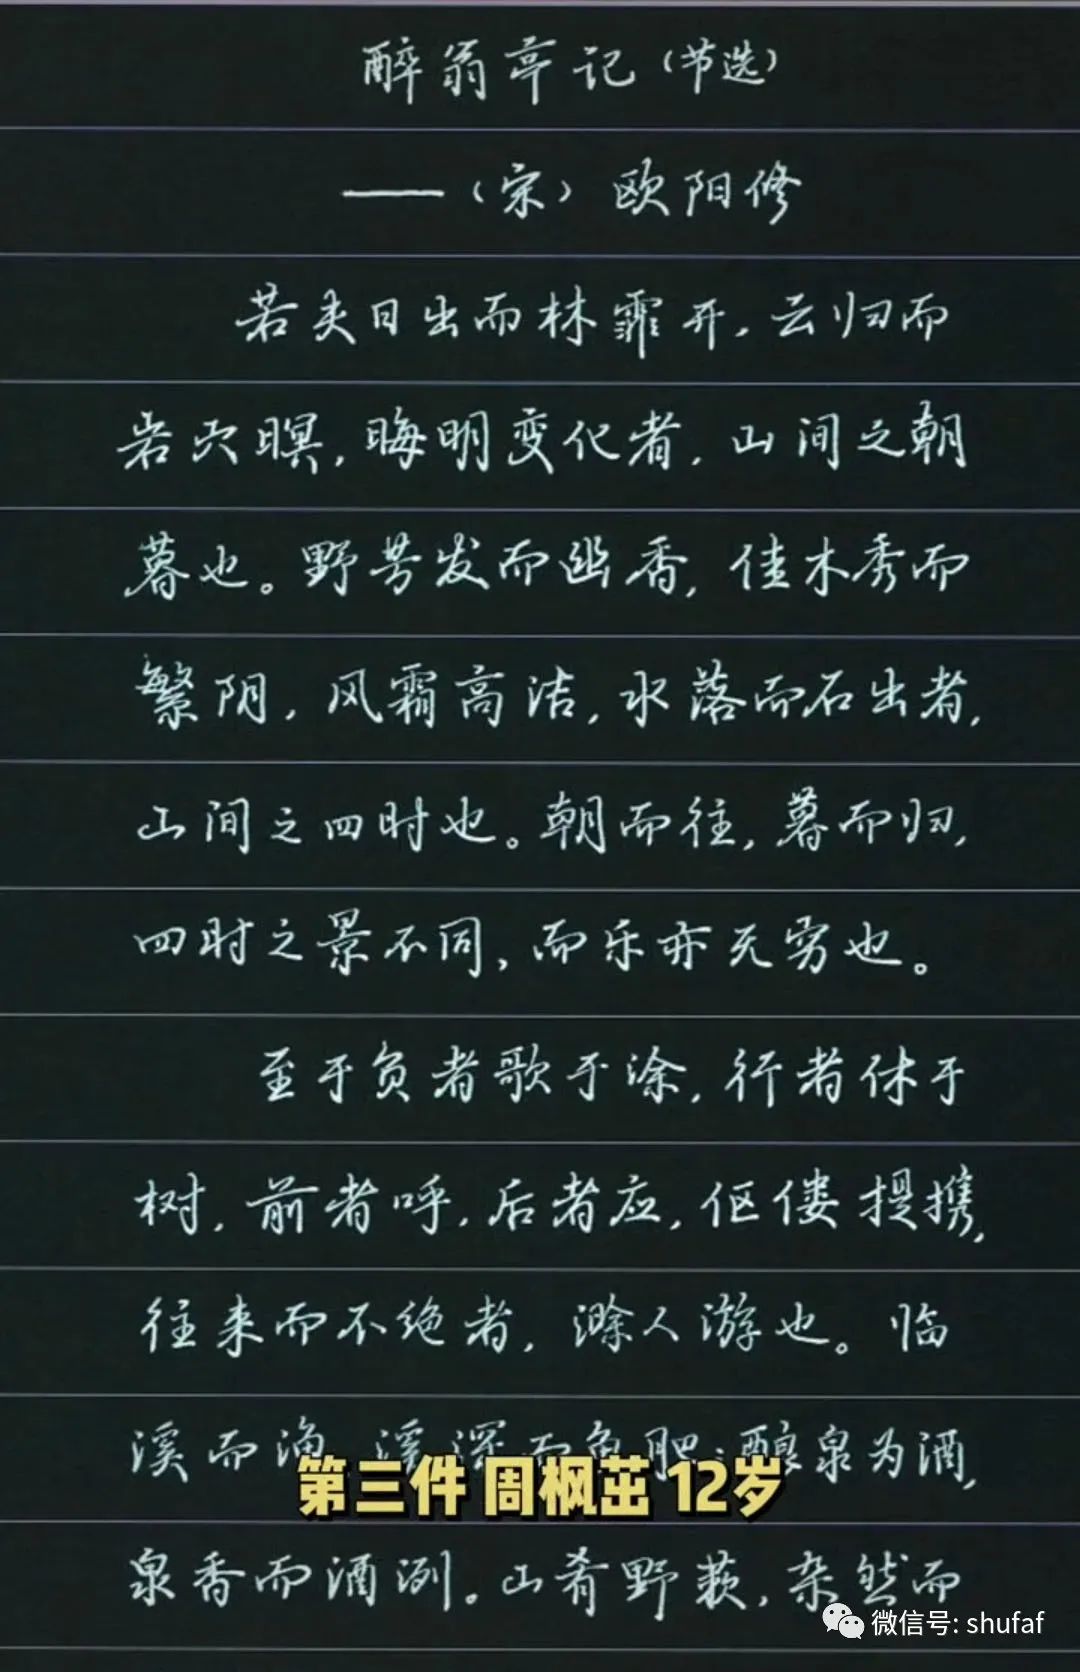 醉翁亭记(节选)
——(宋)欧阳修
若夫日出而林霏开,云归而
岩穴暝,晦明变化者,山间之朝
暮也。野芳发而幽香,佳木秀而
繁阴,风霜高洁,水落而石出者,
山间之四时也。朝而往,暮而归,
四时之景不同,而乐亦无穷也。
至于负者歌于涂,行者休于
树,前者呼,后者应,伛偻提携,
往来而不绝者,滁人游也。临
溪而渔,溪深而鱼肥;酿泉为酒,
第三件 周枫茁 12岁
泉香而酒洌。山肴野蔌,杂然而
微信号: shufaf